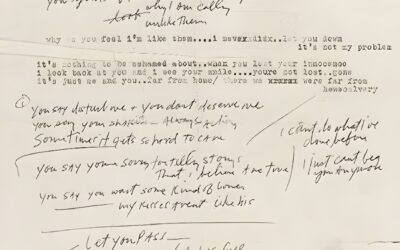 look why I am calling
unlike them
why is you feel i'm like them....i nevexxdidx..let you down
it's not my problem
it's nothing to be ashamed about..when you lost your innocence
i look back at you and i see your smile....youre not lost..gone
it's just me and you..far from home/ there we wrxmxx were far from
① You say disturb me + you dont deserve me
you say your shakin – Always Acting
Sometimes it gets so hard to care
You say your sorry for telling storys
That i believe Are true
You say you want some kind of lover
my kisses arent like his
I cant do what i've
done before
I just cant beg
you Anymore
Let you PASS